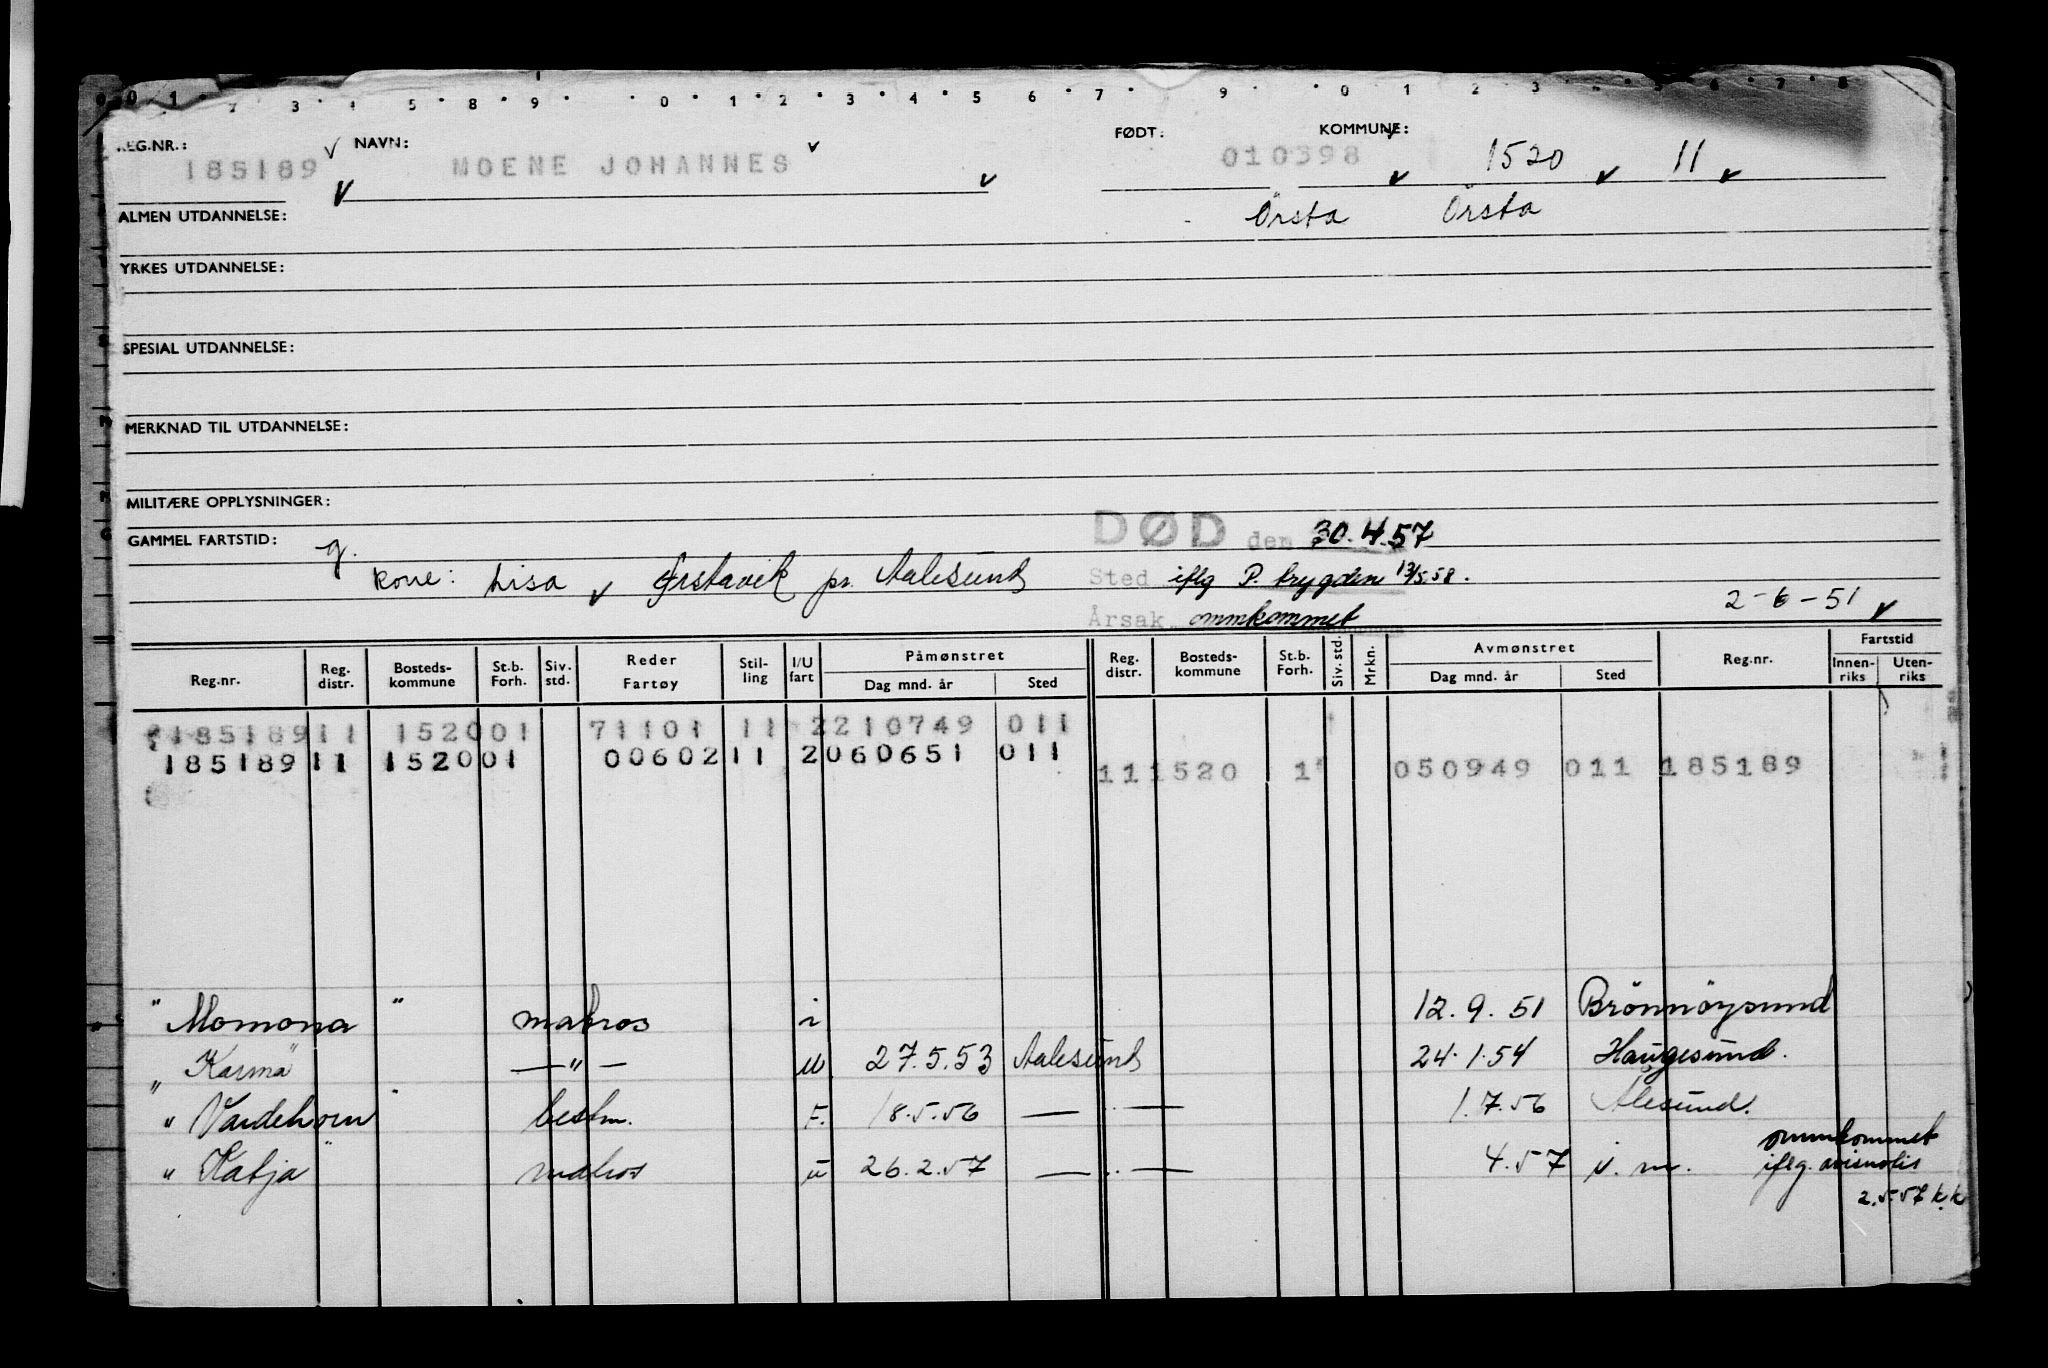 0 1 2 3 4 5 8 9 0 1 2 3 4 5 6 7 9 0 1 2 3 5 6 7 8
REG.NR.: NAVN: FØDT: KOMMUNE:
185189 MOENE JOHANNES 010398 1520 11
Örsta Örsta
ALMEN UTDANNELSE:
YRKES UTDANNELSE:
SPESIAL UTDANNELSE:
MERKNAD TIL UTDANNELSE:
MILITÆRE OPPLYSNINGER:
GAMMEL FARTSTID: g. DØD den 30.4.57
kone: Lisa Ørstavik pr. Aalesund Sted iflg P. trygden 13/5.58.
2-6-51
Årsak ommkommet
Reg.nr. Reg. distr. Bosteds- kommune St.b. Forh. Siv. std. Reder Fartøy Stil- ling I/U fart Påmønstret Dag mnd. år Sted Reg. distr. Bosteds- kommune St.b. Forh. Siv. std. Mrkn. Avmønstret Dag mnd. år Sted Reg.nr. Fartstid Innen- riks Uten- riks
185189 11 1520 01 71101 11 2 210749 011
185189 11 1520 01 00602 11 2 060651 011
11 1520 1 050949 011 185189
" Momona " matros i 12.9.51 Brönnöysund
" Karmä —"— u 27.5.53 Aalesund 24.1.54 Haugesund.
" Vardehorn " bestm. F. 18.5.56 — " — 1.7.56 Ålesund.
" Katja " matros u 26.2.57 — " — 4.57 ommkommet
iflg. avisnotis
2.5.57 k.k